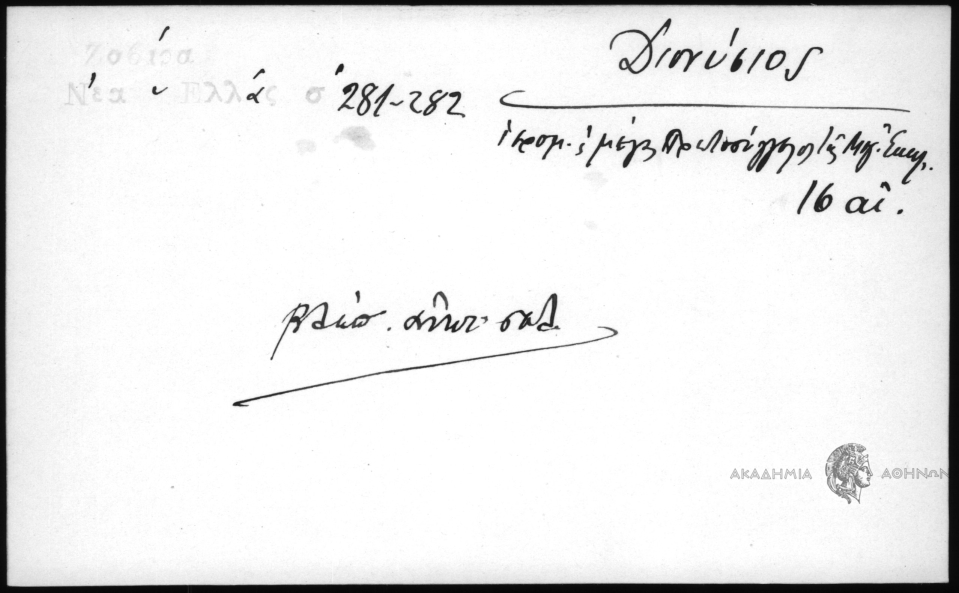 Ζαβίρα
Νέα Ἑλλάς σ 281-282
Διονύσιος
ἱερομ. ὁ μέγας Πρωτοσύγγελος τῆς Μεγ. Ἐκκλ.
16 αἰ.
βλέπ.
ΑΚΑΔΗΜΙΑ ΑΘΗΝΩΝ